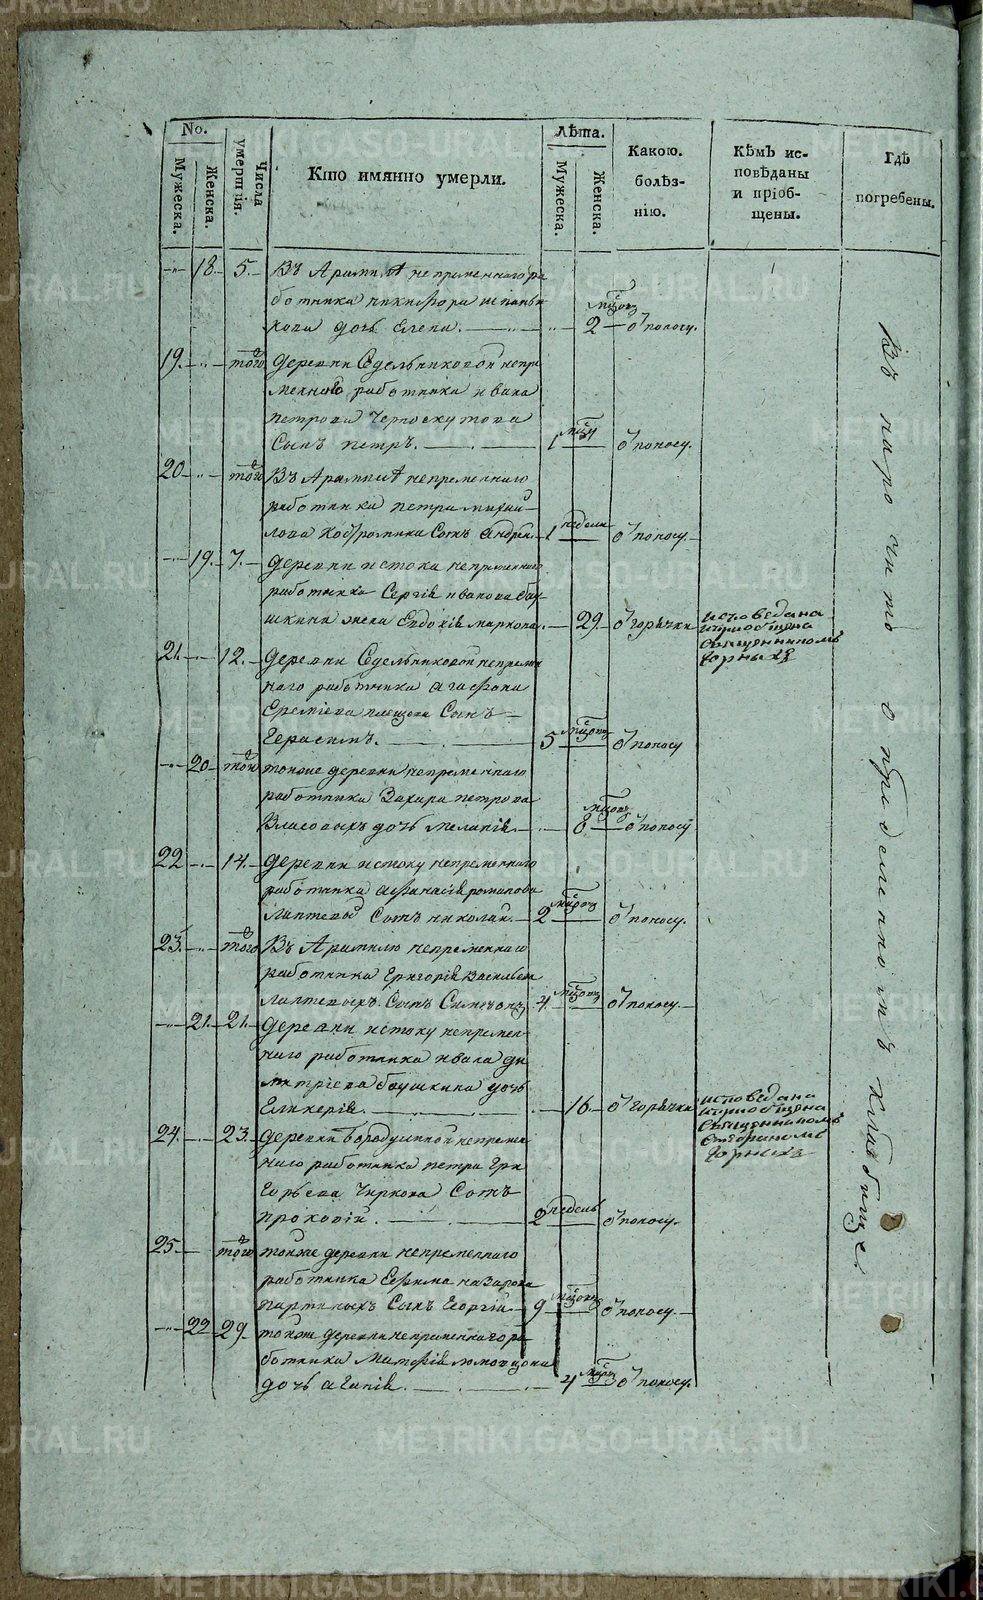 No.
Мужеска.
Женска.
Числа умершiя.
Кто имянно умерли.
Лѣта.
Мужеска.
Женска.
Какою.
болѣз-
нiю.
Кѣмъ ис-
повѣданы
и прiоб-
щены.
Гдѣ
погребены.
18. 5. Въ Арамилѣ непременнаго ра
ботника никифора
дочь Елена. 2 ѿ поносу.
19. того деревни Седельниковой непре
меннаго работника ивана
петрова Черноскутова
Сынъ петръ. 1 ѿ поносу.
20 того Въ Арамилѣ непременнаго
работника петра михай-
лова Костромина Сынъ Андрей 1 неделя ѿ поносу
19. 7. деревни истока непременнаго
работника Сергiя иванова бау
шкина жена Евдокiя маркова. 29. ѿ горячки исповедана
и приобщена
священникомъ
21. 12. деревни Седельниковой непремен
наго работника агафона
Еремiева Сынъ
Герасимъ. 5 ѿ поносу
20 того тоиже деревни непременнаго
работника Захара петрова
Власовыхъ дочь меланiя. 8 ѿ поносу
22 14. деревни истоку непременнаго
работника афанасiя романова
лаптева Сынъ николай. 2 ѿ поносу.
23. того Въ Арамилю непременнаго
работника Григорiя Васильева
лаптевыхъ Сынъ Симеонъ 4 ѿ поносу.
21. 21. деревни истоку непремен-
наго работника ивана ди
митрiева баушкина дочь
Гликерiя. 16. ѿ горячки исповедана
и приобщена
священникомъ
24. 23. деревни бородулиной непремен
наго работника петра Гри
горьева Чиркова Сынъ
прокопiй. 2 недель ѿ поносу.
25 того тоиже деревни непременнаго
работника Ефима назарова
Сынъ Георгiй. 9 ѿ поносу.
22 29. тоиже деревни непременнаго ра
ботника
дочь агапiя. 4 ѿ поносу.
Въ нарочито определенномъ кладбище.
METRIKI.GASO-URAL.RU